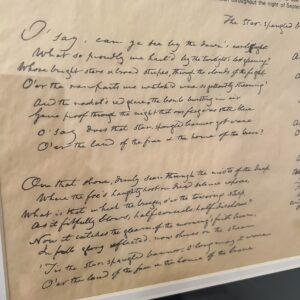 throughout the night of Sep
The Star Spangled b
O! say, can ye see by the dawn's early light
What so proudly we hail'd by the twilight's last gleaming?
Whose bright stars & broad stripes through the clouds of the fight
O'er the ramparts we watch'd were so gallantly streaming?
And the rocket's red glare, the bomb bursting in air
Gave proof through the night that our flag was still there
O! say, does that star-spangled banner yet wave
O'er the land of the free & the home of the brave?
On that shore, dimly seen through the mists of the deep
Where the foe's haughty host in dread silence reposes
What is that which the breeze, o'er the towering steep
As it fitfully blows, half conceals, half discloses?
Now it catches the gleam of the morning's first beam,
In full glory reflected, now shines on the stream
'Tis the star-spangled banner, O! long may it wave
O'er the land of the free & the home of the brave